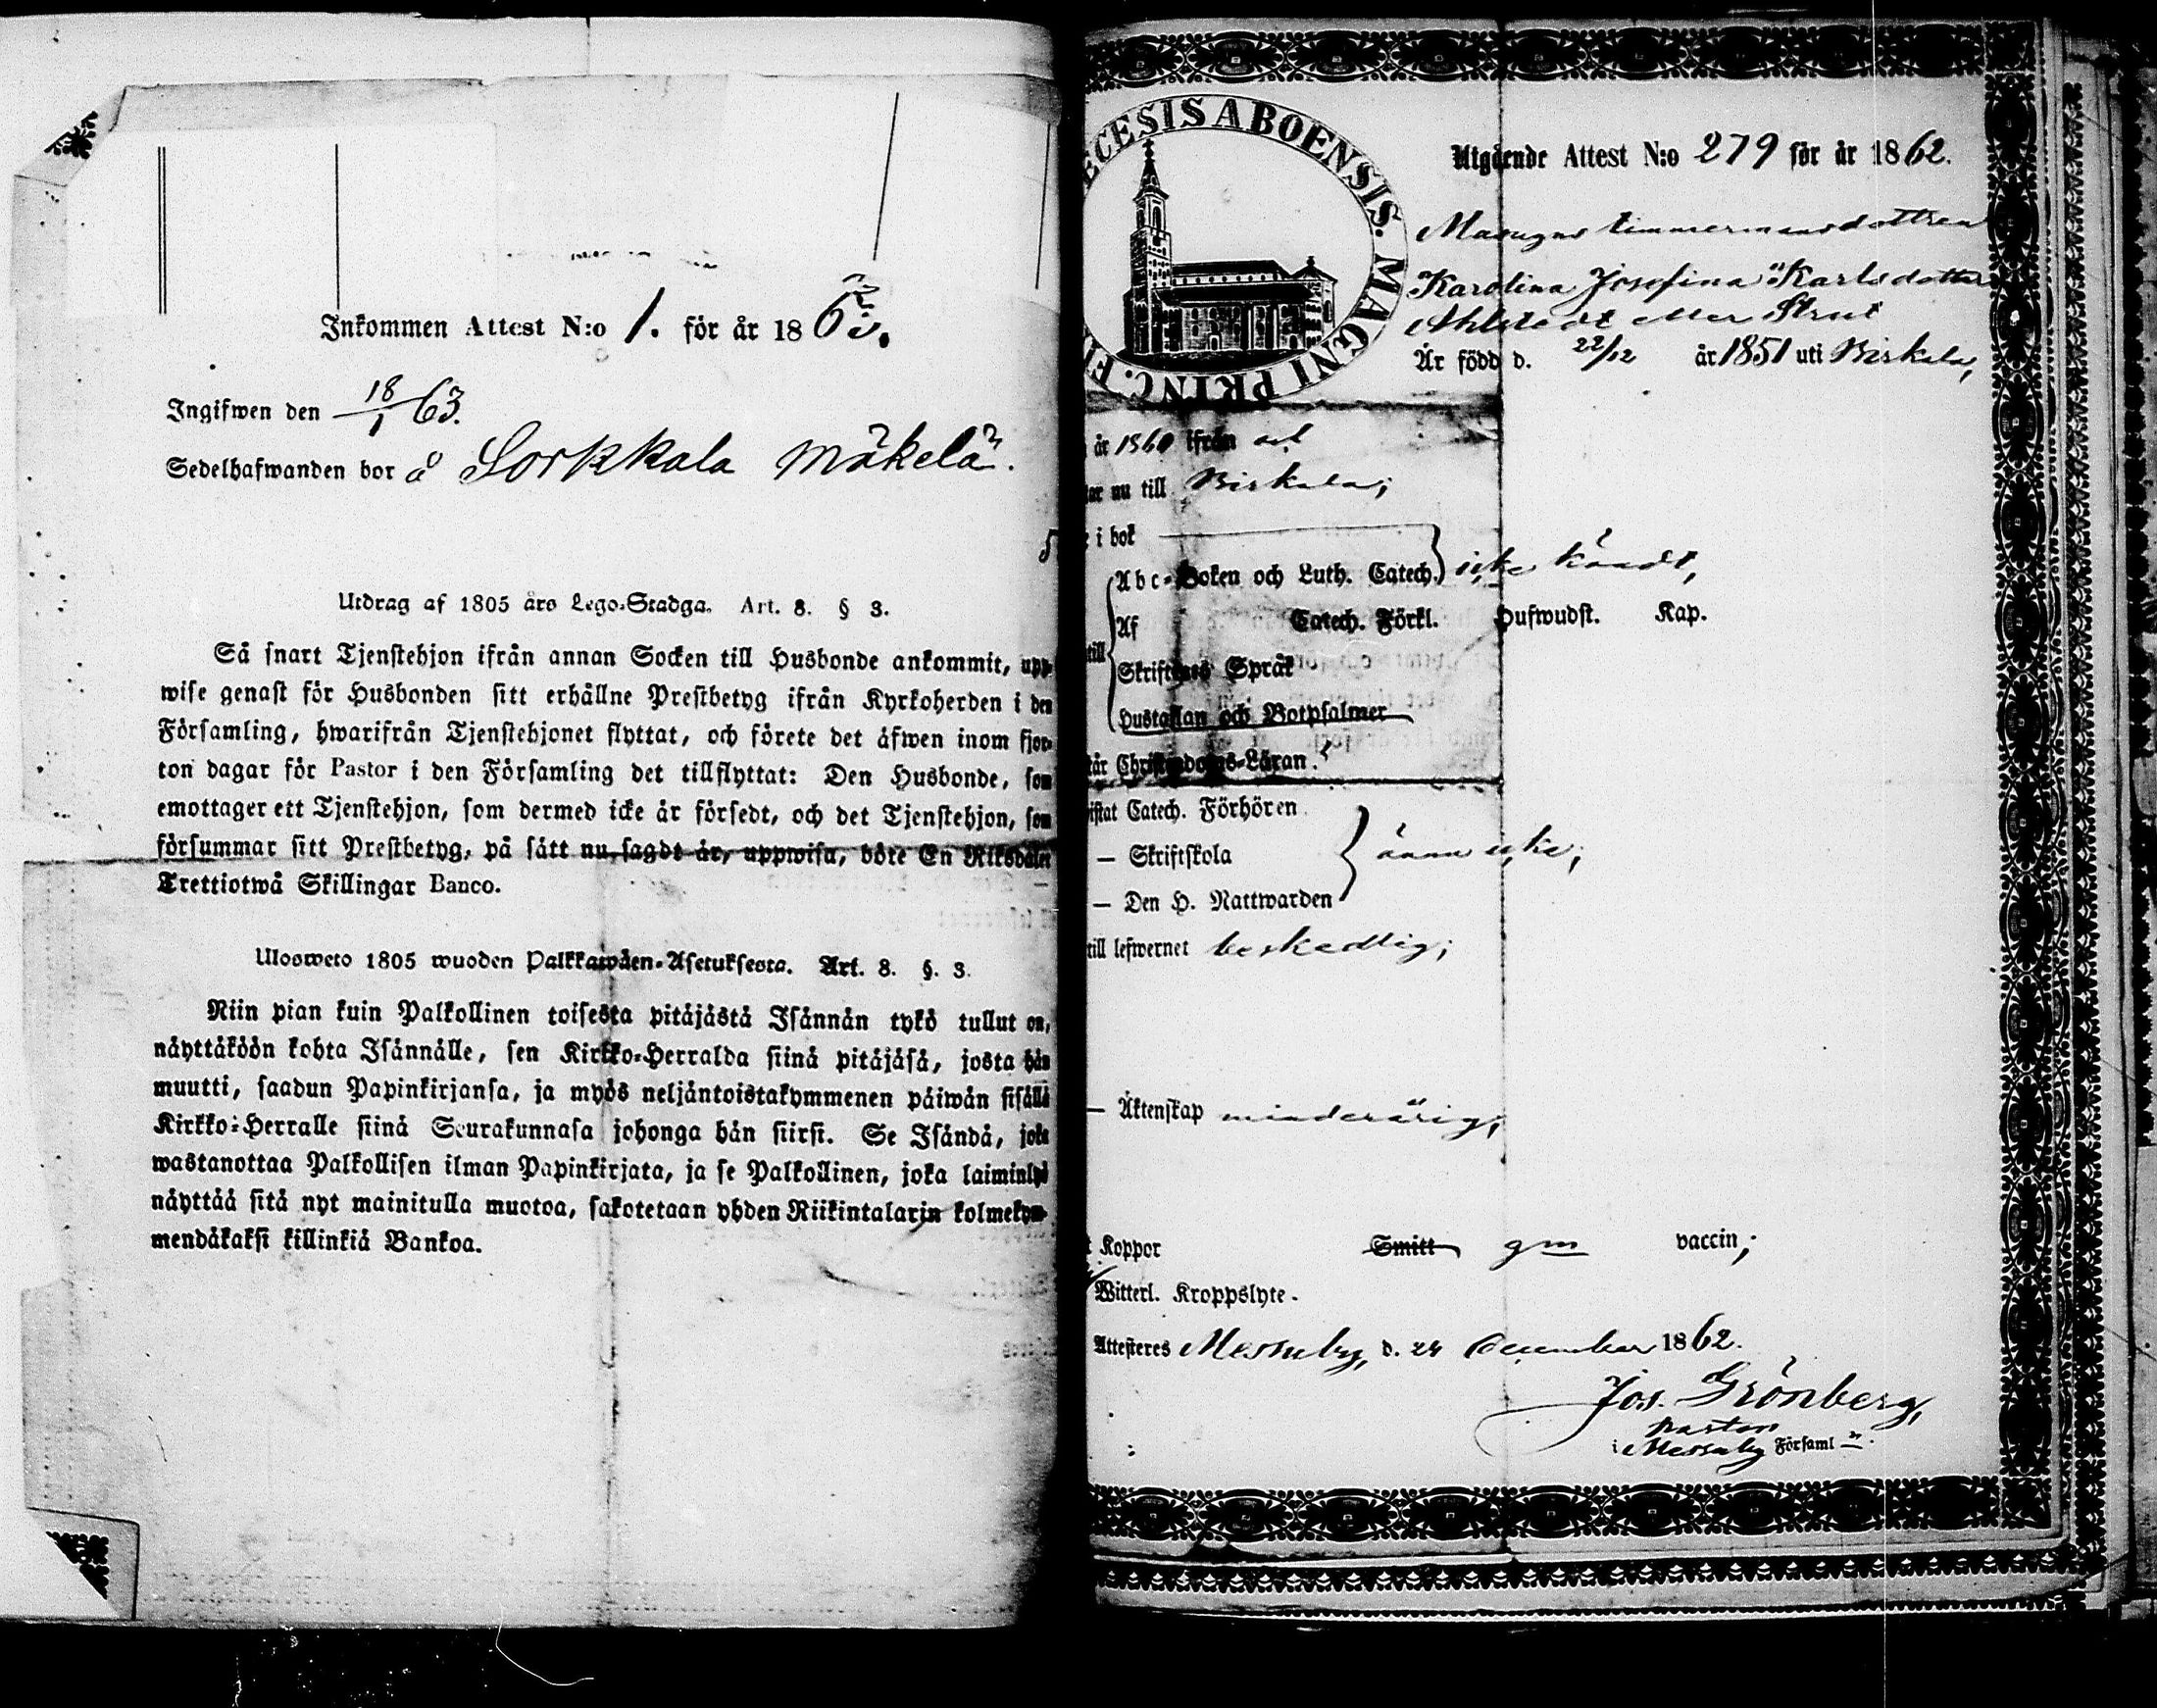 Inkommen Attest N:o 1. för år 1863.
Ingifwen den 18/1 63.
Sedelhafwanden bor å Sorkkala Mäkelä.
Utdrag af 1805 års Lego-Stadga. Art. 8. § 3.
Så snart Tjenstehjon ifrån annan Socken till Husbonde ankommit, upp-
wise genast för Husbonden sitt erhållne Prestbetyg ifrån Kyrkoherden i den
Församling, hwarifrån Tjenstehjonet flyttat, och förete det äfwen inom fjor-
ton dagar för Pastor i den Församling det tillflyttat: Den Husbonde, som
emottager ett Tjenstehjon, som dermed icke är försedt, och det Tjenstehjon, som
försummar sitt Prestbetyg, på sätt nu sagdt är, uppwisa, böte En Riksdaler
Trettiotwå Skillingar Banco.
Ulosweto 1805 wuoden Palkkawäen-Asetuksesta. Art. 8. §. 3.
Niin pian kuin Palkollinen toisesta pitäjästä Isännän tykö tullut on,
näyttäköön kohta Isännälle, sen Kirkko-Herralda siinä pitäjäsä, josta hän
muutti, saadun Papinkirjansa, ja myös neljäntoistakymmenen päiwän sisällä
Kirkko-Herralle siinä Seurakunnasa johonga hän siirsi. Se Isändä, joka
wastanottaa Palkollisen ilman Papinkirjata, ja se Palkollinen, joka laiminlyö
näyttää sitä nyt mainitulla muotoa, sakotetaan yhden Riikintalarin kolmekym-
mendäkaksi killinkiä Bankoa.
ECESIS ABOENSIS. MAGNI PRINC. F
Utgående Attest N:o 279 för år 1862.
Masugns timmermansdottren
Karolina Josefina Karlsdotter
Ahlstedt eller Strut
Är född d. 22/12 år 1851 uti Birkala,
år 1860 ifrån
nu till Birkala;
i bok
Abc-Boken och Luth. Catech. icke kändt,
Af Catech. Förkl. Hufwudst. Kap.
till
Skriftenes Språk
Hustaflan och Botpsalmer
Christendoms-Läran.
istat Catech. Förhören
— Skriftskola ännu icke;
— Den H. Nattwarden
till lefwernet beskedlig;
— Äktenskap minderårig;
Koppor Smitt gm vaccin;
Witterl. Kroppslyte.
Attesteres Messuby, d. 24 December 1862.
Jos. Grönberg,
pastor
i Messuby Församl